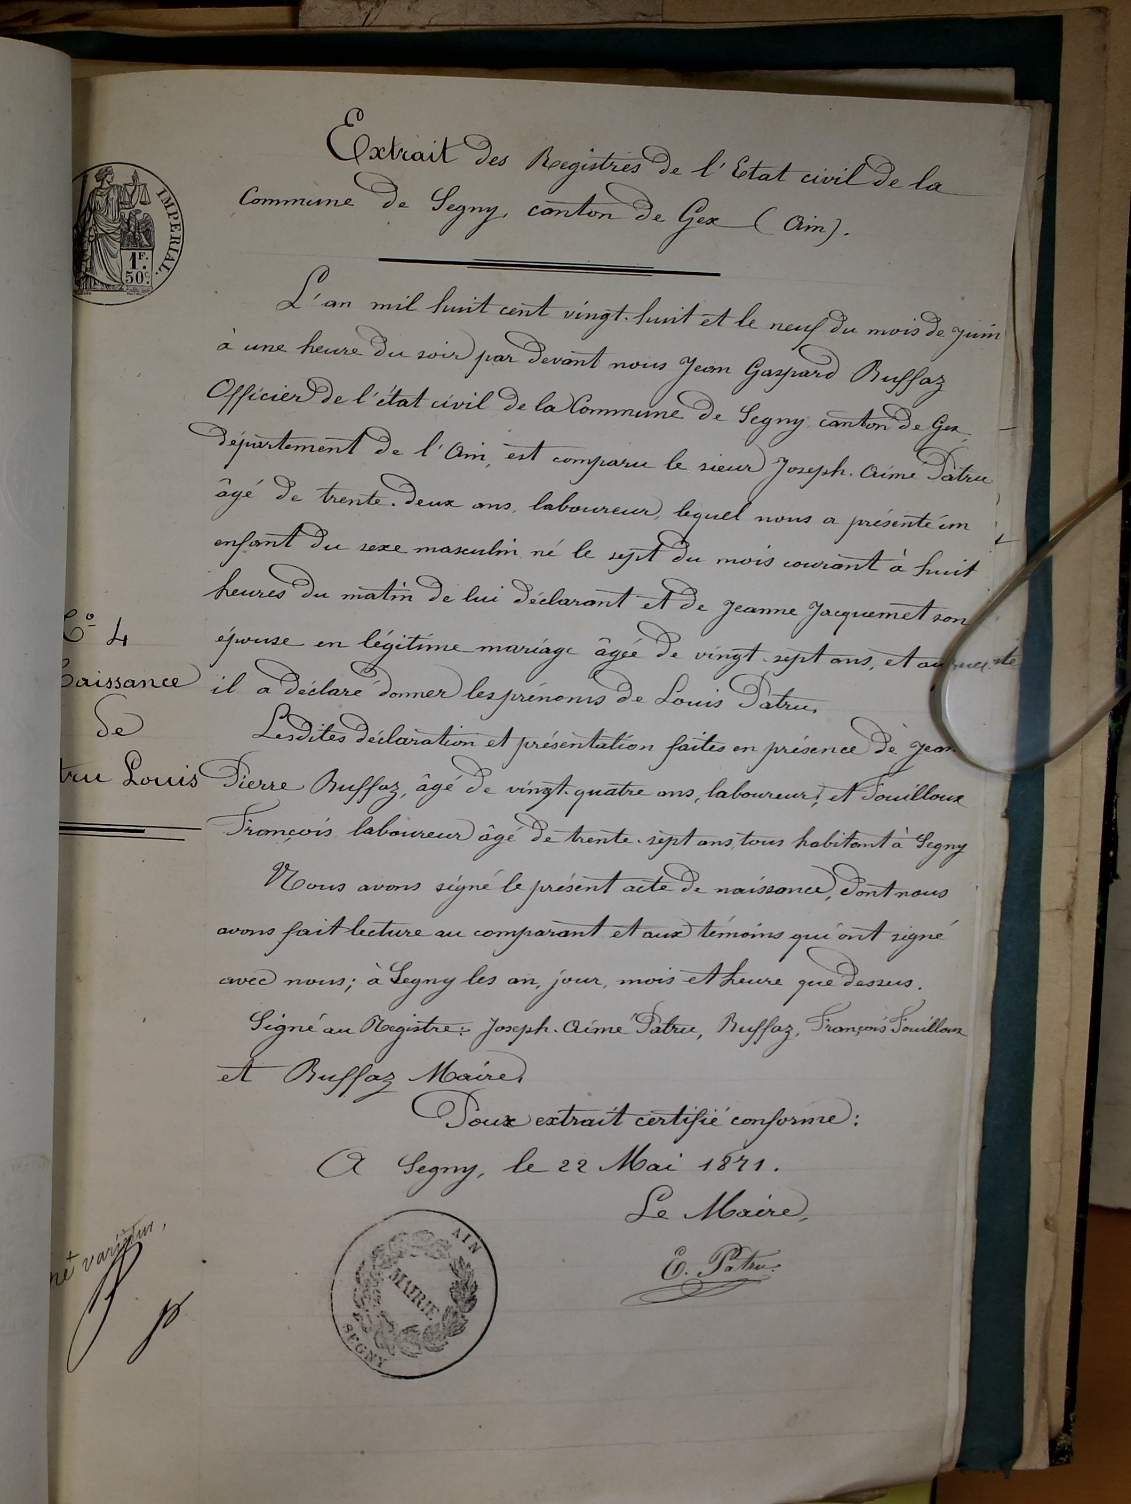 Extrait des Registres de l'Etat civil de la
Commune de Segny, canton de Gex (Ain).
IMPERIAL.
1F.
50c.
L'an mil huit cent vingt-huit et le neuf du mois de juin
à une heure du soir par devant nous Jean Gaspard Buffaz
Officier de l'état civil de la Commune de Segny canton de Gex
département de l'Ain, est comparu le sieur Joseph-Aimé Patru
âgé de trente-deux ans, laboureur, lequel nous a présenté un
enfant du sexe masculin né le sept du mois courant à huit
heures du matin de lui déclarant et de Jeanne Jacquemet son
épouse en légitime mariage âgée de vingt-sept ans, et auquel
il a déclaré donner les prénoms de Louis Patru.
No 4
Naissance
de
tru Louis
Lesdites déclaration et présentation faites en présence de Jean
Pierre Buffaz, âgé de vingt-quatre ans, laboureur, et Fouilloux
François laboureur âgé de trente-sept ans, tous habitant à Segny
Nous avons signé le présent acte de naissance, dont nous
avons fait lecture au comparant et aux témoins qui ont signé
avec nous; à Segny les an, jour, mois et heure que dessus.
Signé au Registre: Joseph-Aimé Patru, Buffaz, François Fouilloux
et Buffaz Maire.
Pour extrait certifié conforme:
A Segny, le 22 Mai 1871.
Le Maire,
E. Patru
AIN
MAIRIE
SEGNY
varietur,